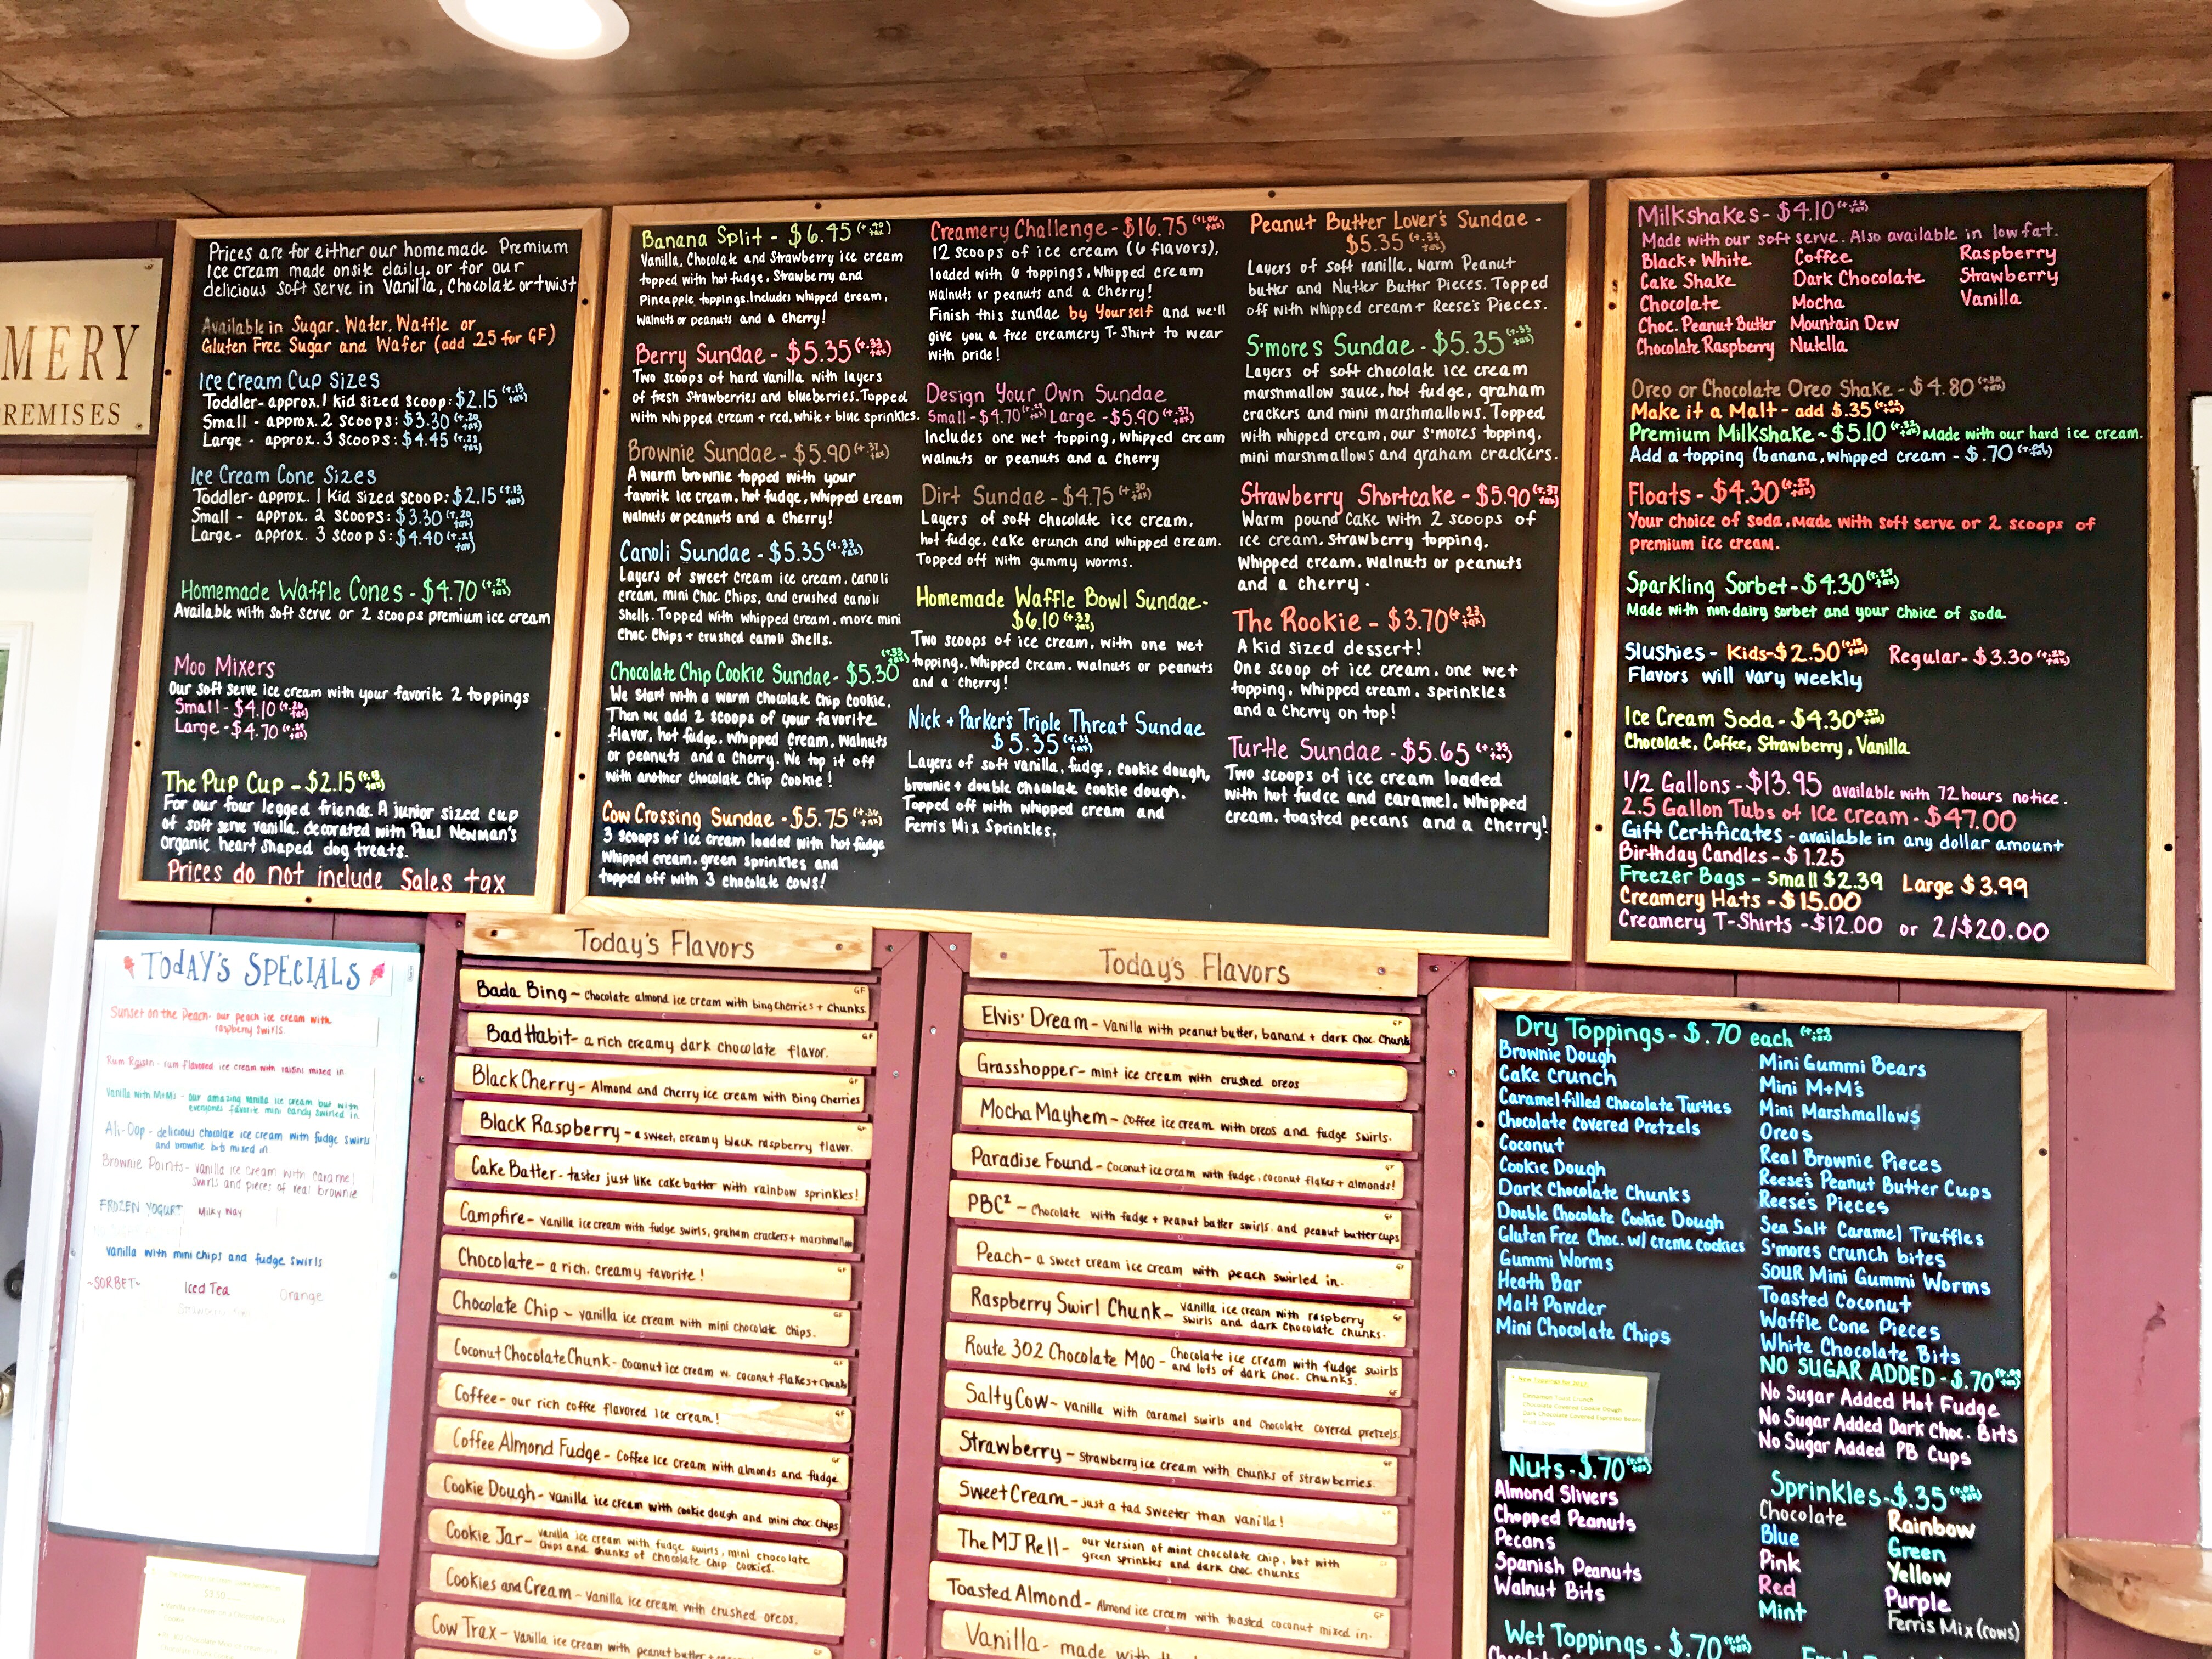 MERY
REMISES
Prices are for either our homemade Premium
Ice cream made onsite daily, or for our
delicious soft serve in Vanilla, Chocolate or twist
Available in Sugar, Wafer, Waffle or
Gluten Free Sugar and Wafer (add .25 for GF)
Ice Cream Cup Sizes
Toddler- approx. 1 kid sized scoop: $2.15 (+.13 tax)
Small - approx. 2 scoops: $3.30 (+.20 tax)
Large - approx. 3 scoops: $4.45
Ice Cream Cone Sizes
Toddler- approx. 1 Kid sized scoop: $2.15 (+.13 tax)
Small - approx. 2 scoops: $3.30 (+.20 tax)
Large - approx. 3 scoops: $4.40
Homemade Waffle Cones - $4.70 (+.29 tax)
Available with soft serve or 2 scoops premium ice cream
Moo Mixers
Our soft serve ice cream with your favorite 2 toppings
Small - $4.10 (+.26 tax)
Large - $4.70 (+.29 tax)
The Pup Cup - $2.15 (+.13 tax)
For our four legged friends. A junior sized cup
of soft serve vanilla, decorated with Paul Newman's
organic heart shaped dog treats.
Prices do not include Sales tax
Banana Split - $6.45 (+.40 tax)
Vanilla, Chocolate and Strawberry ice cream
topped with hot fudge, Strawberry and
Pineapple toppings. Includes whipped cream,
walnuts or peanuts and a cherry!
Berry Sundae - $5.35 (+.33 tax)
Two scoops of hard vanilla with layers
of fresh Strawberries and blueberries. Topped
with whipped cream + red, white + blue sprinkles.
Brownie Sundae - $5.90 (+.37 tax)
A warm brownie topped with your
favorite ice cream, hot fudge, whipped cream
walnuts or peanuts and a cherry!
Canoli Sundae - $5.35 (+.33 tax)
Layers of sweet cream ice cream, canoli
cream, mini Choc. Chips, and crushed canoli
Shells. Topped with whipped cream, more mini
Choc. Chips + crushed canoli shells.
Chocolate Chip Cookie Sundae - $5.30 (+.33 tax)
We start with a warm chocolate chip cookie.
Then we add 2 scoops of your favorite
flavor, hot fudge, whipped cream, walnuts
or peanuts and a cherry. We top it off
with another chocolate chip cookie!
Cow Crossing Sundae - $5.75 (+.36 tax)
3 scoops of ice cream loaded with hot fudge
whipped cream, green sprinkles and
topped off with 3 chocolate cows!
Creamery Challenge - $16.75
12 scoops of ice cream (6 flavors),
loaded with 6 toppings, whipped cream
walnuts or peanuts and a cherry!
Finish this sundae by yourself and we'll
give you a free creamery T-Shirt to wear
with pride!
Design Your Own Sundae
Small - $4.70 (+.29 tax) Large - $5.90 (+.37 tax)
Includes one wet topping, whipped cream
walnuts or peanuts and a cherry
Dirt Sundae - $4.75 (+.30 tax)
Layers of soft chocolate ice cream,
hot fudge, cake crunch and whipped cream.
Topped off with gummy worms.
Homemade Waffle Bowl Sundae-
$6.10 (+.38 tax)
Two scoops of ice cream, with one wet
topping, whipped cream, walnuts or peanuts
and a cherry!
Nick + Parker's Triple Threat Sundae
$5.35 (+.33 tax)
Layers of soft vanilla, fudge, cookie dough,
brownie + double chocolate cookie dough.
Topped off with whipped cream and
Ferris Mix Sprinkles.
Peanut Butter Lover's Sundae -
$5.35 (+.33 tax)
Layers of soft vanilla, warm Peanut
butter and Nutter Butter Pieces. Topped
off with whipped cream + Reese's Pieces.
S'mores Sundae - $5.35 (+.33 tax)
Layers of soft chocolate ice cream
marshmallow sauce, hot fudge, graham
crackers and mini marshmallows. Topped
with whipped cream, our s'mores topping,
mini marshmallows and graham crackers.
Strawberry Shortcake - $5.90 (+.37 tax)
Warm pound cake with 2 scoops of
ice cream, strawberry topping,
whipped cream, walnuts or peanuts
and a cherry.
The Rookie - $3.70 (+.23 tax)
A kid sized dessert!
One scoop of ice cream, one wet
topping, whipped cream, sprinkles
and a cherry on top!
Turtle Sundae - $5.65 (+.35 tax)
Two scoops of ice cream loaded
with hot fudce and caramel, whipped
cream, toasted pecans and a cherry!
Milkshakes - $4.10 (+.26 tax)
Made with our soft serve. Also available in low fat.
Black + White Coffee Raspberry
Cake Shake Dark Chocolate Strawberry
Chocolate Mocha Vanilla
Choc. Peanut Butter Mountain Dew
Chocolate Raspberry Nutella
Oreo or Chocolate Oreo Shake - $4.80 (+.30 tax)
Make it a Malt - add $.35 (+.02 tax)
Premium Milkshake ~ $5.10 (+.32 tax) Made with our hard ice cream.
Add a topping (banana, whipped cream - $.70 (+.04 tax)
Floats - $4.30 (+.27 tax)
Your choice of soda, made with soft serve or 2 scoops of
premium ice cream.
Sparkling Sorbet - $4.30 (+.27 tax)
Made with non-dairy sorbet and your choice of soda
Slushies - Kids-$2.50 Regular - $3.30 (+.20 tax)
Flavors will vary weekly
Ice Cream Soda - $4.30 (+.27 tax)
Chocolate, Coffee, Strawberry, Vanilla
1/2 Gallons - $13.95 available with 72 hours notice.
2.5 Gallon Tubs of Ice cream - $47.00
Gift Certificates - available in any dollar amount
Birthday Candles - $1.25
Freezer Bags - small $2.39 Large $3.99
Creamery Hats - $15.00
Creamery T-Shirts - $12.00 or 2/$20.00
TODAY'S SPECIALS
Sunset on the Peach - our peach ice cream with
raspberry swirls.
Rum Raisin - rum flavored ice cream with raisins mixed in
Vanilla with M+Ms - our amazing vanilla ice cream but with
everyones favorite mini candy swirled in.
Ali-Oop - delicious chocolate ice cream with fudge swirls
and brownie bits mixed in
Brownie Points - vanilla ice cream with caramel
swirls and pieces of real brownie
FROZEN YOGURT Milky Way
vanilla with mini chips and fudge swirls
~SORBET~ Iced Tea Orange
Today's Flavors
Bada Bing - Chocolate almond ice cream with bing Cherries + Chunks. GF
Bad Habit - a rich creamy dark chocolate flavor. GF
Black Cherry - Almond and cherry ice cream with Bing Cherries GF
Black Raspberry - a sweet, creamy black raspberry flavor. GF
Cake Batter - tastes just like cake batter with rainbow sprinkles!
Campfire - vanilla ice cream with fudge swirls, graham crackers + marshmallow
Chocolate - a rich, creamy favorite! GF
Chocolate Chip - vanilla ice cream with mini chocolate chips. GF
Coconut Chocolate Chunk - coconut ice cream w. coconut flakes + chunks GF
Coffee - our rich coffee flavored ice cream! GF
Coffee Almond Fudge - Coffee ice cream with almonds and fudge GF
Cookie Dough - vanilla ice cream with cookie dough and mini choc chips
Cookie Jar - vanilla ice cream with fudge swirls, mini chocolate
chips and chunks of chocolate chip cookies.
Cookies and Cream - vanilla ice cream with crushed oreos.
Cow Trax - vanilla ice cream with peanut butter GF
Today's Flavors
Elvis' Dream - Vanilla with peanut butter, banana + dark choc. chunk GF
Grasshopper - mint ice cream with crushed oreos
Mocha Mayhem - coffee ice cream with oreos and fudge swirls.
Paradise Found - Coconut ice cream with fudge, coconut flakes + almonds! GF
PBC² - Chocolate with fudge + peanut butter swirls and peanut butter cups GF
Peach - a sweet cream ice cream with peach swirled in. GF
Raspberry Swirl Chunk - vanilla ice cream with raspberry
swirls and dark chocolate chunks. GF
Route 302 Chocolate Moo - Chocolate ice cream with fudge swirls
and lots of dark choc. chunks. GF
Salty Cow - vanilla with caramel swirls and chocolate covered pretzels.
Strawberry - Strawberry ice cream with chunks of strawberries. GF
Sweet Cream - just a tad sweeter than vanilla! GF
The MJ Rell - our version of mint chocolate chip, but with
green sprinkles and dark choc. chunks
Toasted Almond - Almond ice cream with toasted coconut mixed in. GF
Vanilla - made with
Dry Toppings - $.70 each (+.04 tax)
Brownie Dough
Cake Crunch
Caramel filled Chocolate Turtles
Chocolate covered Pretzels
Coconut
Cookie Dough
Dark Chocolate Chunks
Double Chocolate Cookie Dough
Gluten Free Choc. w/ creme cookies
Gummi Worms
Heath Bar
Malt Powder
Mini Chocolate Chips
Mini Gummi Bears
Mini M+M's
Mini Marshmallows
Oreos
Real Brownie Pieces
Reese's Peanut Butter Cups
Reese's Pieces
Sea Salt Caramel Truffles
S'mores crunch bites
SOUR Mini Gummi Worms
Toasted Coconut
Waffle Cone Pieces
White Chocolate Bits
NO SUGAR ADDED - $.70 (+.04 tax)
No Sugar Added Hot Fudge
No Sugar Added Dark Choc. Bits
No Sugar Added PB Cups
Nuts - $.70 (+.04 tax)
Almond Slivers
Chopped Peanuts
Pecans
Spanish Peanuts
Walnut Bits
Sprinkles - $.35 (+.02 tax)
Chocolate Rainbow
Blue Green
Pink Yellow
Red Purple
Mint Ferris Mix (cows)
Wet Toppings - $.70 (+.04 tax)